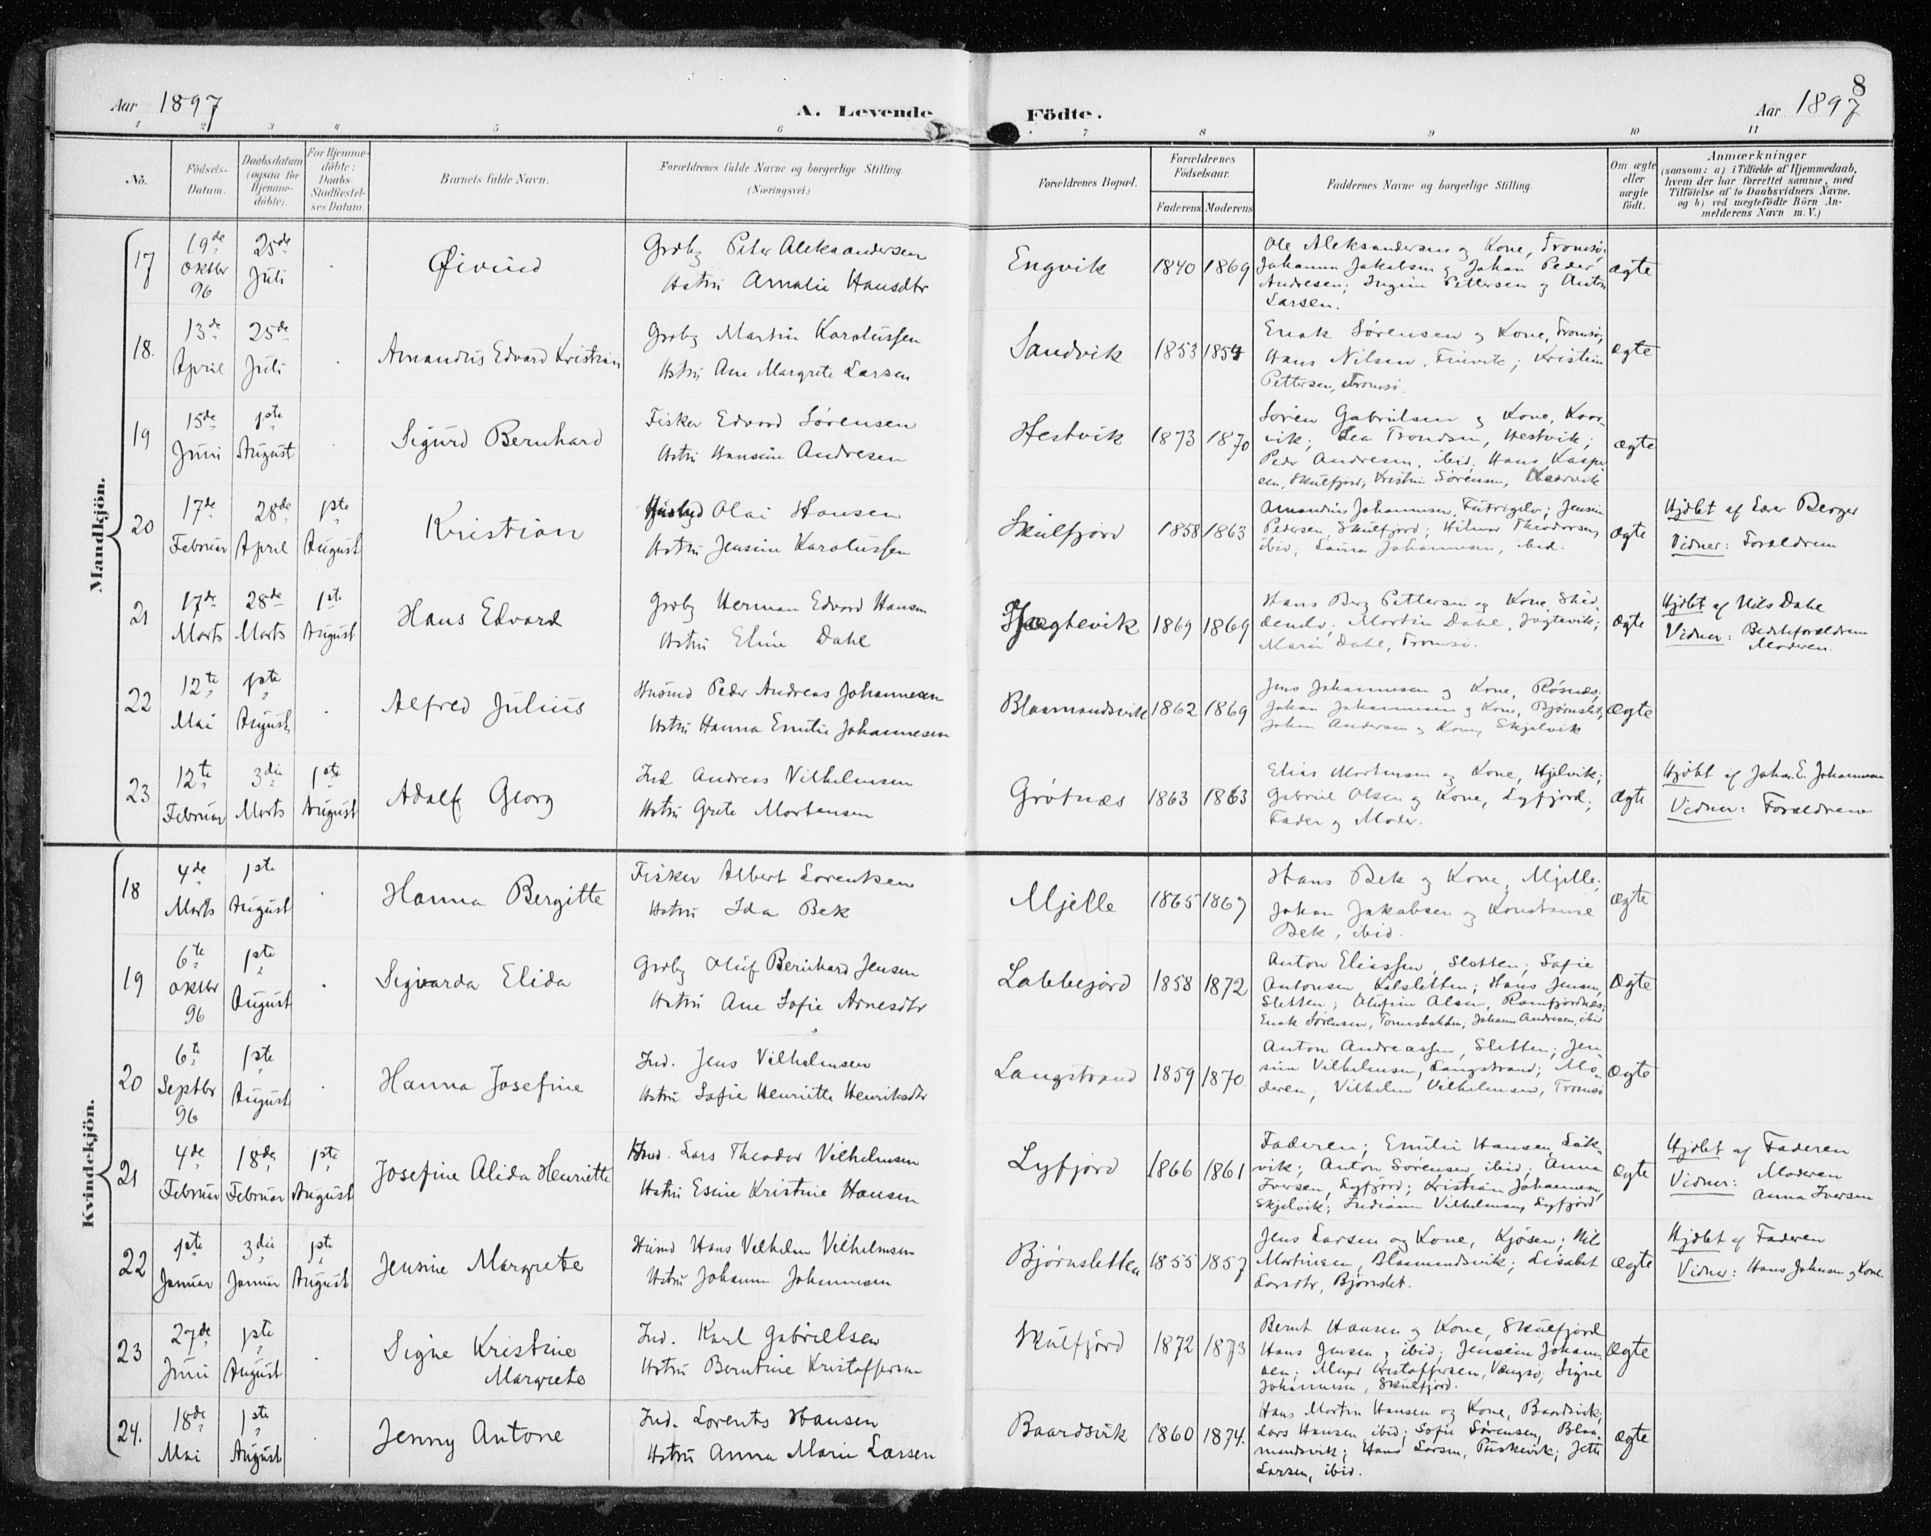 Aar 1897
A. Levende Födte.
8
Aar 1897
1 2 3 4 5 6 7 8 9 10 11
No.
Födsels-Datum.
Daabsdatum (ogsaa for Hjemme-döbte).
For Hjemme-döbte: Daabs-Stadfæstel-ses Datum.
Barnets fulde Navn.
Forældrenes fulde Navne og borgerlige Stilling (Næringsvei.)
Forældrenes Bopæl.
Forældrenes Födselsaar.
Faderens Moderens
Faddernes Navne og borgerlige Stilling.
Om ægte eller uægte födt.
Anmærkninger
(saasom: a) i Tilfælde af Hjemmedaab,
hvem der har forrettet samme, med
Tilföielse af to Daabsvidners Navne.
og b) ved uægtefödte Börn An-
melderens Navn m. V.)
Mandkjön.
17
19de Oktbr 96
25de Juli
Øivind
Grdbg Peter Aleksandersen
Hstru Amalie Hansdtr
Engvik
1840 1869
Ole Aleksandersen og Kone, Tromsø;
Johanna Jakobsen og Johan Peder
Andresen; Pettersen og Anton
Larsen.
ægte
18.
13de April
25de Juli
Amandus Edvard Kristian
Grdbg Martin Karolussen
Hstru Ane Margrete Larsen
Sandvik
1853 1854
Enok Sørensen og Kone, Tromsø;
Hans Nilsen, Finvik; Kristine
Pettersen, Tromsø.
ægte
19
15de Juni
1ste August
Sigurd Bernhard
Fisker Edvard Sørensen
Hstru Hansine Andresen
Hestvik
1873 1870
Søren Gabrielsen og Kone, Kaar-
vik; Lea Trondsen, Hestvik;
Peder Andresen, ibid; Hans Kasper-
sen, Skulfjord; Kristine Sørensen,
ægte
20
17de Februar
28de April
1ste August
Kristian
Husbd Olai Hansen
Hstru Jensine Karolussen
Skulfjord
1858 1863
Amandus Johannesen, Futrigelv; Jensine
Pedersen, Skulfjord; Hilmar Theodorsen,
ibid; Laura Johannesen, ibid.
ægte
Hjdbt af Berger
Vidner: Forældrene
21
17de Marts
28de Marts
1ste August
Hans Edvard
Grdbg Herman Edvard Hansen
Hstru Eline Dahl
Jægtevik
1869 1869
Hans Berg Pettersen og Kone,
Martin Dahl, Jægtevik;
Marie Dahl, Tromsø.
ægte
Hjdbt af Nils Dahl
Vidner: Bedsteforældrene
Moderen.
22
12te Mai
1ste August
Alfred Julius
Husmd Peder Andreas Johannesen
Hstru Hanna Emilie Johannesen
Blaamandsvik
1862 1869
Jens Johannesen og Kone, Røsnes;
Johan Johannesen og Kone, Bjørnslet;
Johan Andersen og Kone, Skjelvik
ægte
23
12te Februar
3die Marts
1ste August
Adolf Georg
Ind Andreas Vilhelmsen
Hstru Grete Mortensen
Grøtnæs
1863 1863
Elias Mortensen og Kone, Hjelvik;
Gabriel Olsen og Kone, Lyfjord;
Fader og Moder.
ægte
Hjdbt af Johan E. Johannesen
Vidner: Forældrene
Kvindekjön.
18
4de Marts
1ste August
Hanna Bergitte
Fisker Albert Lorentsen
Hstru Ida Bek
Mjelle
1865 1867
Hans Bek og Kone, Mjelle;
Johan Jakobsen og Konstanse
Bek, ibid.
ægte
19
6te Oktbr 96
1ste August
Sigvarda Elida
Grdbg Oluf Bernhard Jensen
Hstru Ane Sofie Arnesdtr
Labbejord
1858 1872
Anton Eliassen, Sletten; Sofie
Antonsen, Kalsletten; Hans Jensen,
Sletten; Olufine Olsen, Ramfjordnes;
Enok Sørensen, Johann Andresen, ibid
ægte
20
6te Septbr 96
1ste August
Hanna Josefine
Ind. Jens Vilhelmsen
Hstru Sofie Henriette Henriksdtr
Langstrand
1859 1870
Anton Andreassen, Sletten; Jen-
sine Vilhelmsen, Langstrand; Mo-
deren; Vilhelm Vilhelmsen, Tromsø
ægte
21
4de Februar
18de Februar
1ste August
Josefine Alida Henriette
Ind. Lars Theodor Vilhelmsen
Hstru Esine Kristine Hansen
Lyfjord
1866 1861
Faderen; Emilie Hansen,
vik; Anton Sørensen, ibid; Anna
Iversen, Lyfjord; Kristian Johannesen,
Skjelvik; Vilhelmsen, Lyfjord
ægte
Hjdbt af Faderen
Vidner: Moderen
Anna Iversen
22
1ste Januar
3die Januar
1ste August
Jensine Margrete
Husmd Hans Vilhelm Vilhelmsen
Hstru Johanne Johannesen
Bjørnsletten
1855 1857
Jens Larsen og Kone, Kjøsen; Nils
Mortinsen, Blaamandsvik; Lisabet
Larsdtr, Bjørnslet.
ægte
Hjdbt af Faderen
Vidner: Hans Johnsen og Kone
23
27de Juni
1ste August
Signe Kristine
Margrete
Ind. Karl Gabrielsen
Hstru Berntine Kristoffersen
Skulfjord
1872 1873
Bernt Hansen og Kone, Skulfjord
Hans Jensen, ibid; Jensine Johanne-
sen; Kristoffersen, Vengsø; Signe
Johannesen, Skulfjord.
ægte
24.
18de Mai
1ste August
Jenny Antone
Ind. Lorents Hansen
Hstru Anna Marie Larsen
Baardsvik
1860 1874.
Hans Martin Hansen og Kone, Baardsvik;
Lars Hansen, ibid; Sofie Sørensen, Blaa-
mandsvik; Hans Larsen, Piskevik; Jette
Larsen, ibid.
ægte